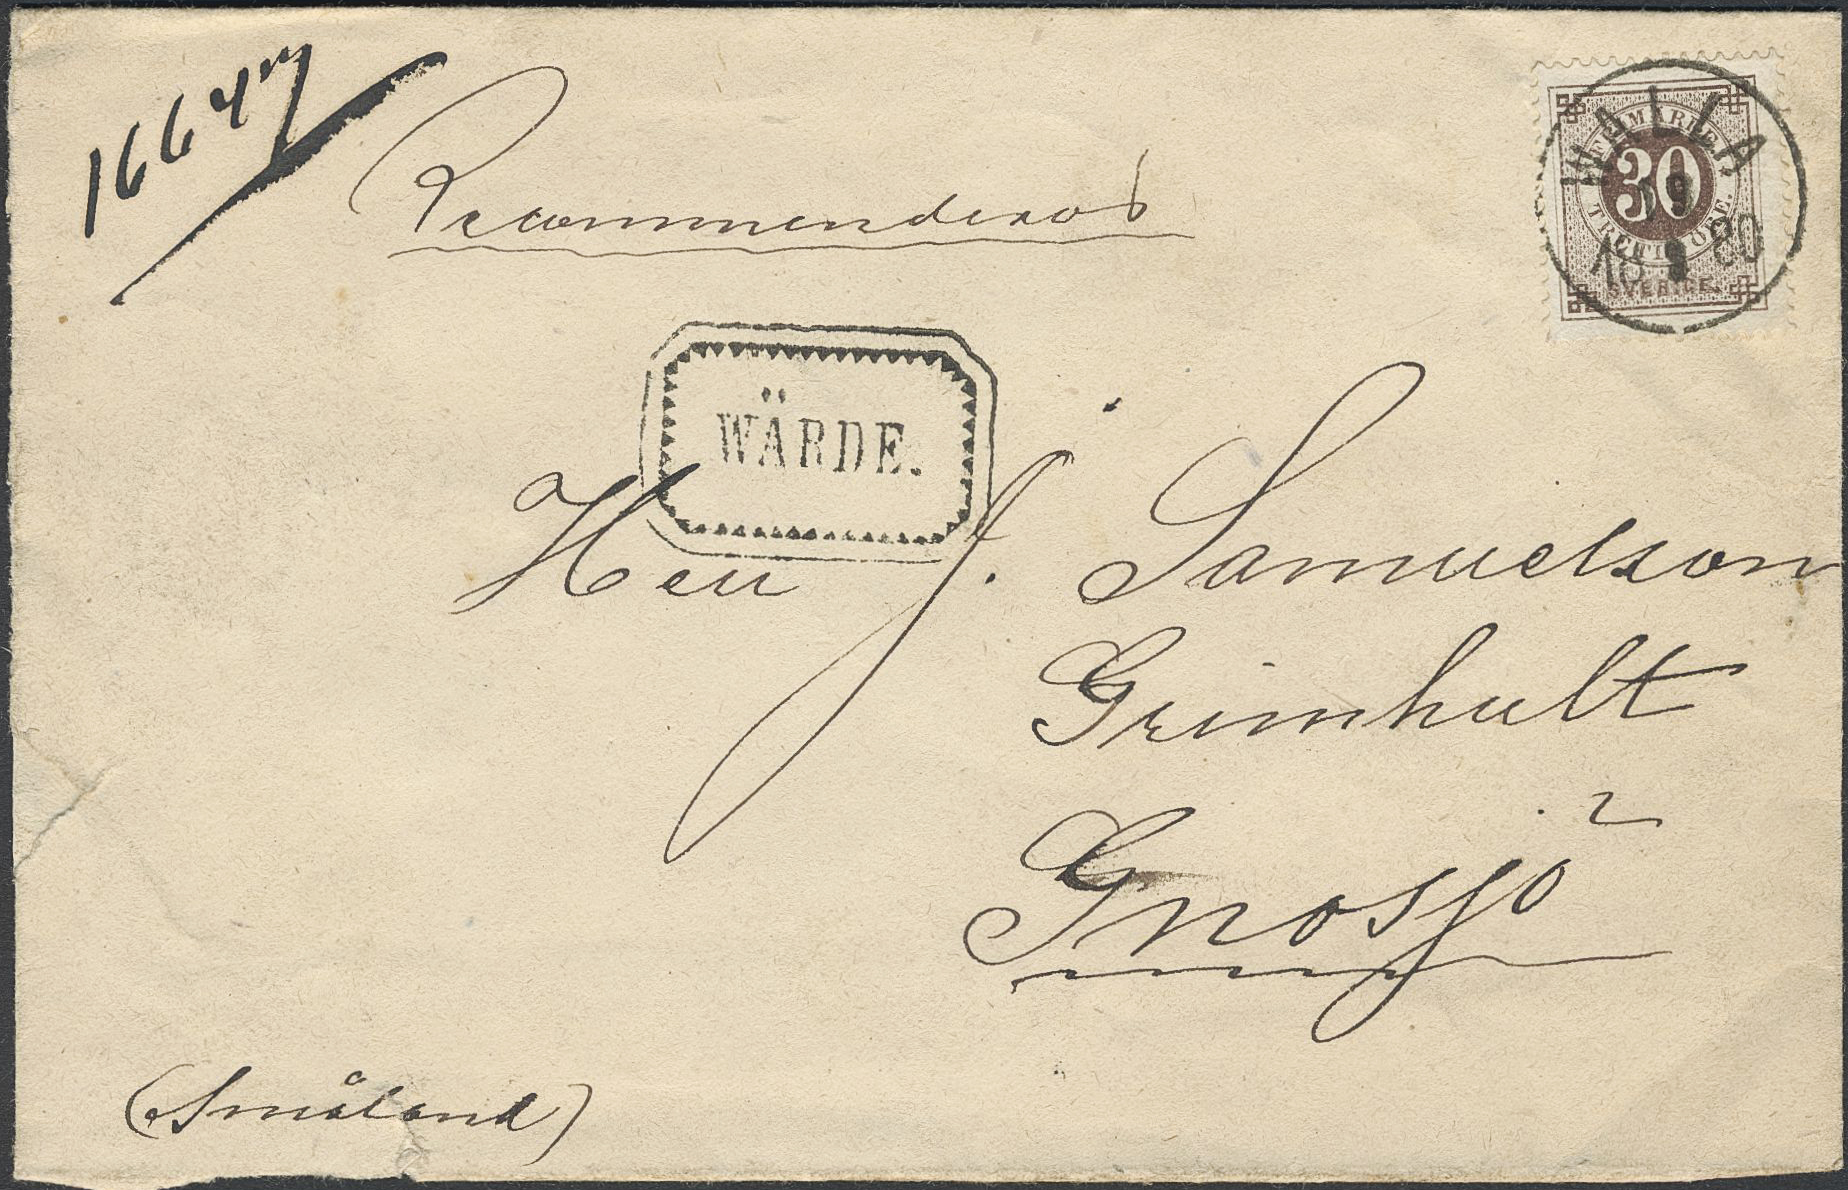 16647
Recommenderas
FRIMÄRKE.
30
TRETTIO ÖRE.
SVERIGE.
WALLA
WÄRDE.
Herr J. Samuelson
Grimhult
Gnosjö
(Småland)